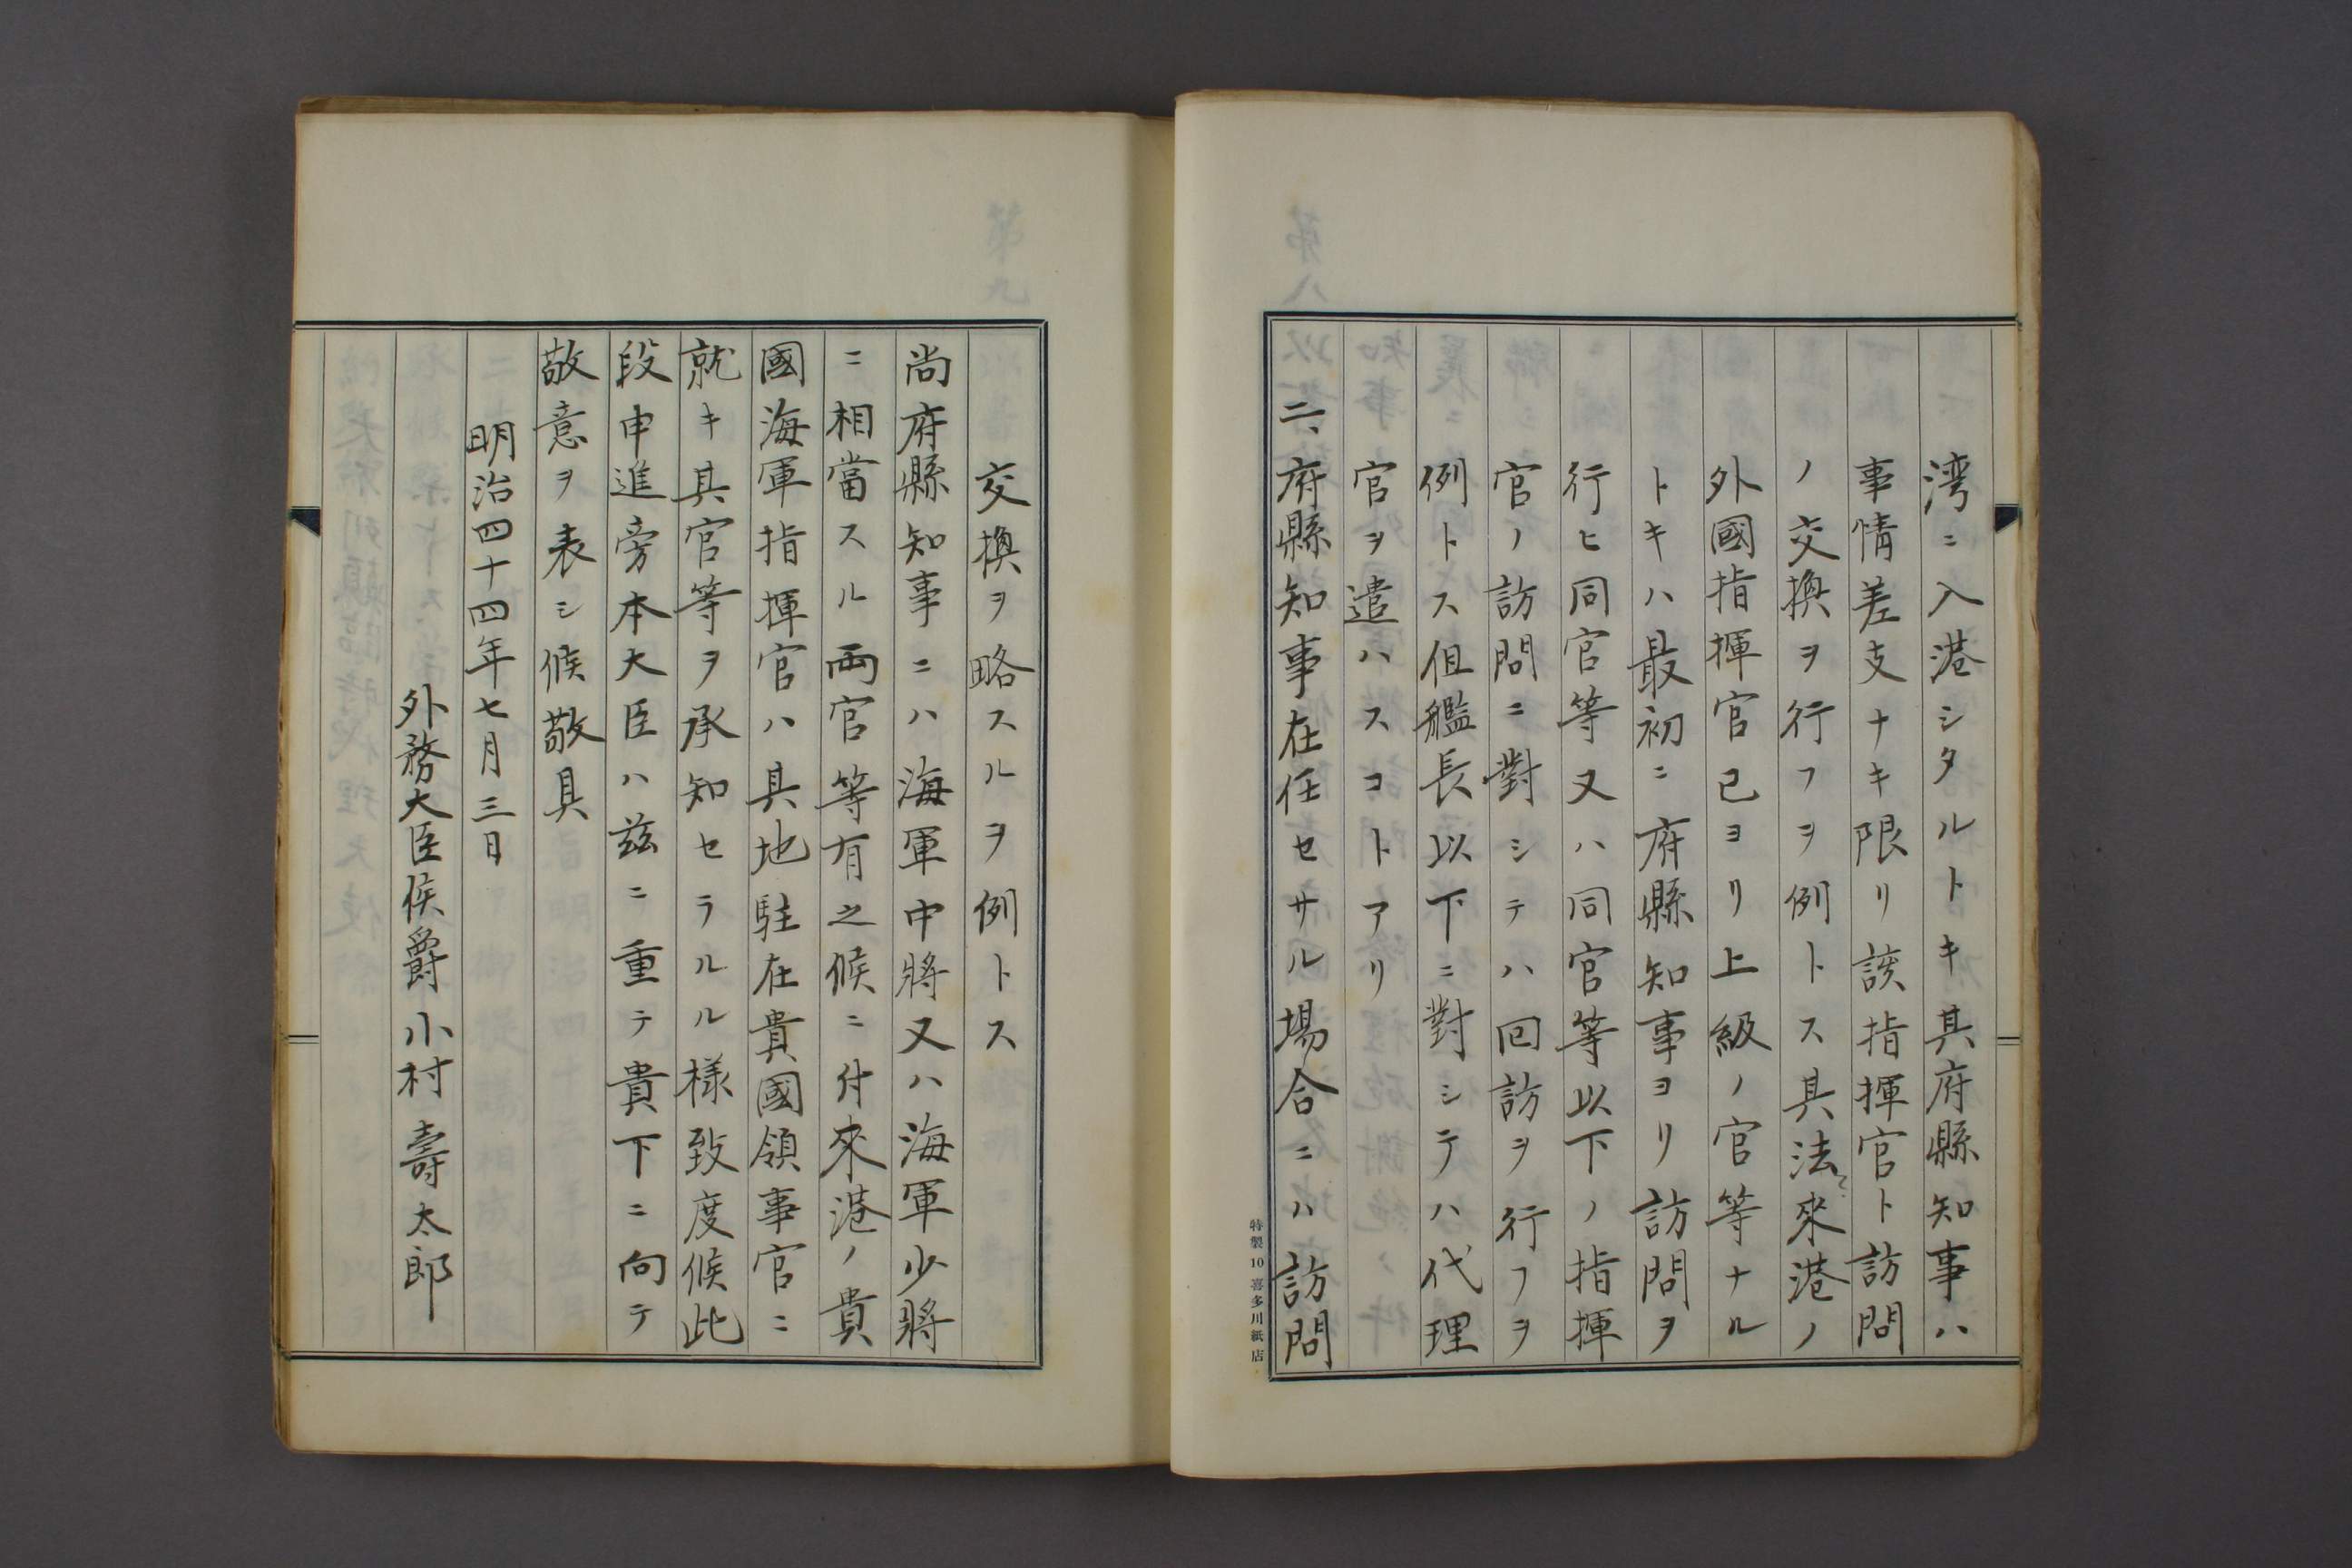 湾ニ入港シタルトキ其府縣知事ハ
事情差支ナキ限リ該指揮官ト訪問
ノ交換ヲ行フヲ例トス其法來港ノ
外國指揮官已ヨリ上級ノ官等ナル
トキハ最初ニ府縣知事ヨリ訪問ヲ
行ヒ同官等又ハ同官等以下ノ指揮
官ノ訪問ニ對シテハ回訪ヲ行フヲ
例トス但艦長以下ニ對シテハ代理
官ヲ遣ハスコトアリ
二、府縣知事在任セサル場合ニハ訪問
特製10喜多川紙店
交換ヲ略スルヲ例トス
尚府縣知事ニハ海軍中將又ハ海軍少將
ニ相當スル両官等有之候ニ付來港ノ貴
國海軍指揮官ハ具地駐在貴國領事官ニ
就キ其官等ヲ承知セラルル様致度候此
段申進旁本大臣ハ茲ニ重テ貴下ニ向テ
敬意ヲ表シ候敬具
明治四十四年七月三日
外務大臣侯爵小村壽太郎